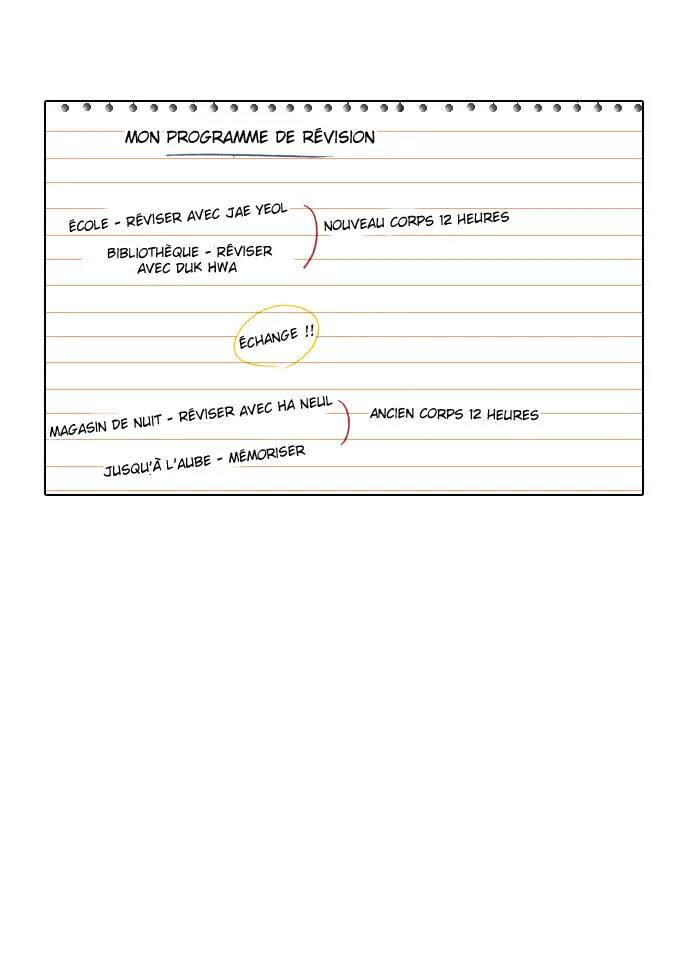 MON PROGRAMME DE RÉVISION
ÉCOLE - RÉVISER AVEC JAE YEOL
NOUVEAU CORPS 12 HEURES
BIBLIOTHÈQUE - RÉVISER
AVEC DUK HWA
ÉCHANGE !!
MAGASIN DE NUIT - RÉVISER AVEC HA NEUL
ANCIEN CORPS 12 HEURES
JUSQU'À L'AUBE - MÉMORISER